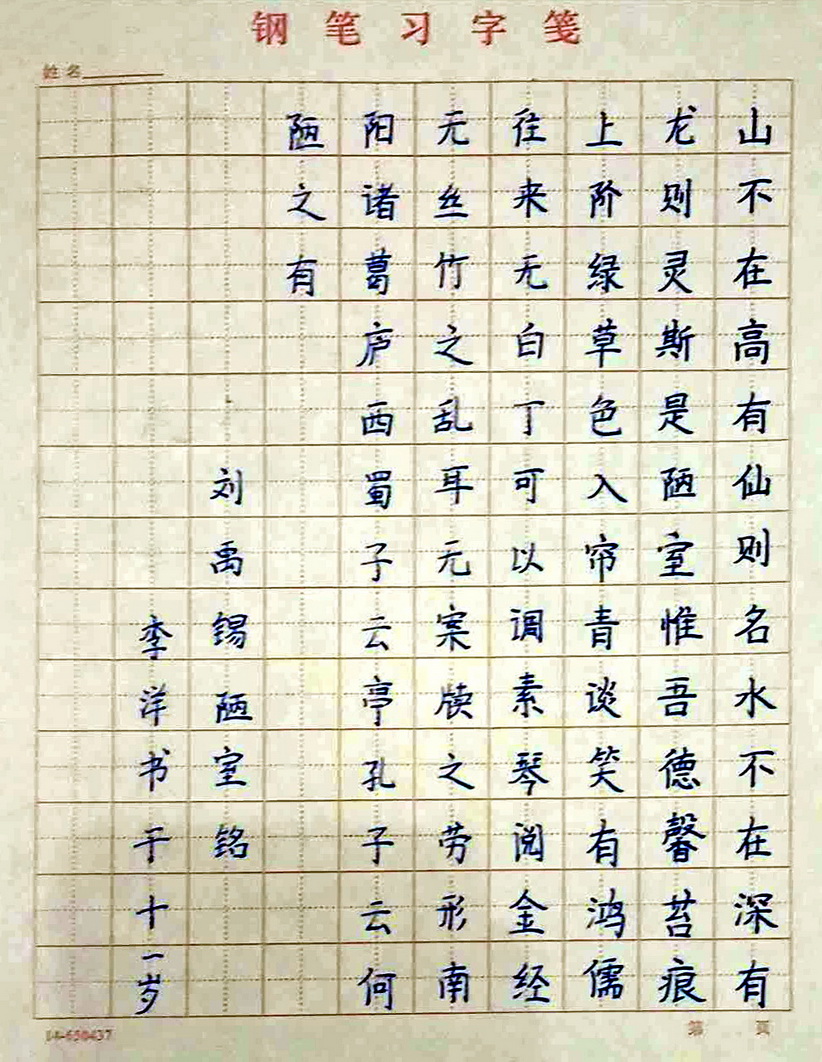 钢笔习字笺
姓名
山不在高有仙则名水不在深有
龙则灵斯是陋室惟吾德馨苔痕
上阶绿草色入帘青谈笑有鸿儒
往来无白丁可以调素琴阅金经
无丝竹之乱耳无案牍之劳形南
阳诸葛庐西蜀子云亭孔子云何
陋之有
刘禹锡陋室铭
李洋书于十一岁
14-650437
第 页